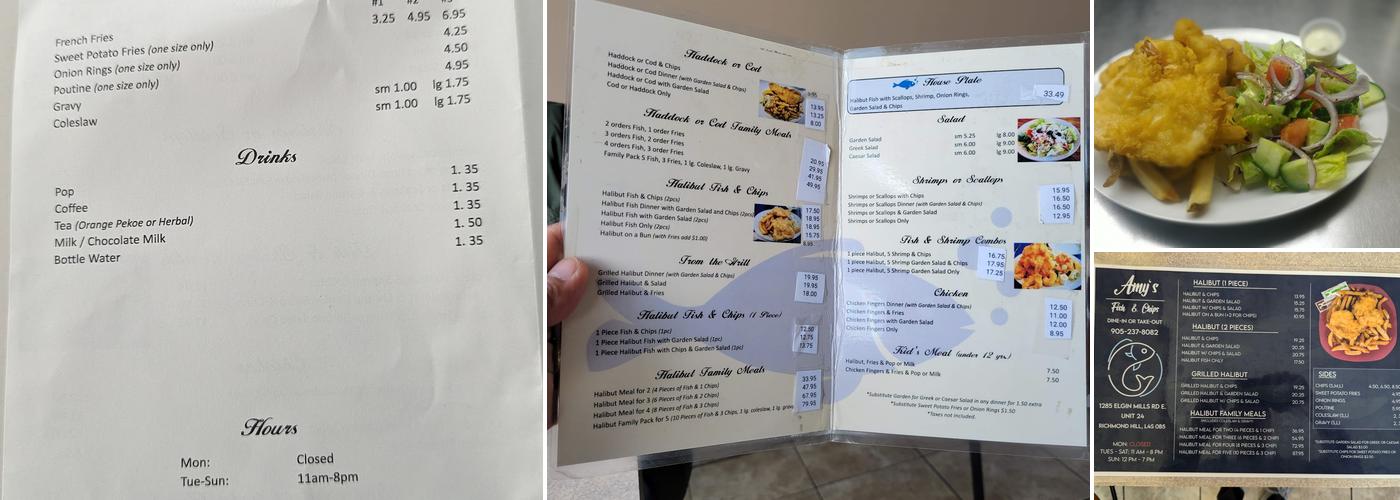 #1 #2
French Fries 3.25 4.95 6.95
Sweet Potato Fries (one size only) 4.25
Onion Rings (one size only) 4.50
Poutine (one size only) 4.95
Gravy sm 1.00 lg 1.75
Coleslaw sm 1.00 lg 1.75
Drinks
Pop 1. 35
Coffee 1. 35
Tea (Orange Pekoe or Herbal) 1. 35
Milk / Chocolate Milk 1. 50
Bottle Water 1. 35
Hours
Mon: Closed
Tue-Sun: 11am-8pm
Haddock or Cod
Haddock or Cod & Chips
Haddock or Cod Dinner (with Garden Salad & Chips) 13.95
Haddock or Cod with Garden Salad 13.25
Cod or Haddock Only 8.00
Haddock or Cod Family Meals
2 orders Fish, 1 order Fries 20.95
3 orders Fish, 2 order Fries 29.95
4 orders Fish, 3 order Fries 41.95
Family Pack 5 Fish, 3 Fries, 1 lg. Coleslaw, 1 lg. Gravy 49.95
Halibut Fish & Chips
Halibut Fish & Chips (2pcs) 17.50
Halibut Fish Dinner with Garden Salad and Chips (2pcs) 18.95
Halibut Fish with Garden Salad (2pcs) 18.95
Halibut Fish Only (2pcs) 15.75
Halibut on a Bun (with Fries add $1.00) 8.95
From the Grill
Grilled Halibut Dinner (with Garden Salad & Chips) 19.95
Grilled Halibut & Salad 19.95
Grilled Halibut & Fries 18.00
Halibut Fish & Chips (1 Piece)
1 Piece Fish & Chips (1pc) 12.50
1 Piece Halibut Fish with Garden Salad (1pc) 12.75
1 Piece Halibut Fish with Chips & Garden Salad (1pc) 13.75
Halibut Family Meals
Halibut Meal for 2 (4 Pieces of Fish & 1 Chips) 33.95
Halibut Meal for 3 (6 Pieces of Fish & 2 Chips) 47.95
Halibut Meal for 4 (8 Pieces of Fish & 3 Chips) 67.95
Halibut Family Pack for 5 (10 Pieces of Fish & 3 Chips, 1 lg. coleslaw, 1 lg. gravy) 79.95
House Plate
Halibut Fish with Scallops, Shrimp, Onion Rings,
Garden Salad & Chips 33.49
Salad
Garden Salad sm 5.25 lg 8.00
Greek Salad sm 6.00 lg 9.00
Caesar Salad sm 6.00 lg 9.00
Shrimps or Scallops
Shrimps or Scallops with Chips 15.95
Shrimps or Scallops Dinner (with Garden Salad & Chips) 16.50
Shrimps or Scallops & Garden Salad 16.50
Shrimps or Scallops Only 12.95
Fish & Shrimp Combos
1 piece Halibut, 5 Shrimp & Chips 16.75
1 piece Halibut, 5 Shrimp Garden Salad & Chips 17.95
1 piece Halibut, 5 Shrimp Garden Salad Only 17.25
Chicken
Chicken Fingers Dinner (with Garden Salad & Chips) 12.50
Chicken Fingers & Fries 11.00
Chicken Fingers with Garden Salad 12.00
Chicken Fingers Only 8.95
Kid's Meal (under 12 yrs)
Halibut, Fries & Pop or Milk 7.50
Chicken Fingers & Fries & Pop or Milk 7.50
*Substitute Garden for Greek or Caesar Salad in any dinner for 1.50 extra
*Substitute Sweet Potato Fries or Onion Rings $1.50
*Taxes not Included.
Amy's
Fish & Chips
DINE-IN OR TAKE-OUT
905-237-8082
1285 ELGIN MILLS RD E.
UNIT 24
RICHMOND HILL, L4S 0B5
MON: CLOSED
TUES - SAT: 11 AM - 8 PM
SUN: 12 PM - 7 PM
HALIBUT (1 PIECE)
HALIBUT & CHIPS 13.95
HALIBUT & GARDEN SALAD 15.25
HALIBUT W/ CHIPS & SALAD 15.75
HALIBUT ON A BUN (+2 FOR CHIPS) 10.95
HALIBUT (2 PIECES)
HALIBUT & CHIPS 19.25
HALIBUT & GARDEN SALAD 20.25
HALIBUT W/ CHIPS & SALAD 20.75
HALIBUT FISH ONLY 17.50
GRILLED HALIBUT
GRILLED HALIBUT & CHIPS 19.25
GRILLED HALIBUT & GARDEN SALAD 20.25
GRILLED HALIBUT W/ CHIPS & SALAD 20.75
HALIBUT FAMILY MEALS
HALIBUT MEAL FOR TWO (4 PIECES & 1 CHIP) 36.95
HALIBUT MEAL FOR THREE (6 PIECES & 2 CHIP) 54.95
HALIBUT MEAL FOR FOUR (8 PIECES & 3 CHIP) 72.95
HALIBUT MEAL FOR FIVE (10 PIECES & 3 CHIP) 87.95
SIDES
CHIPS (S,M,L) 4.50, 6.50, 8.50
SWEET POTATO FRIES
ONION RINGS
POUTINE
COLESLAW (S,L)
GRAVY (S,L)
*SUBSTITUTE GARDEN SALAD FOR GREEK OR CAESAR
SALAD $2.00
*SUBSTITUTE CHIPS FOR SWEET POTATO FRIES OR
ONION RINGS $2.50